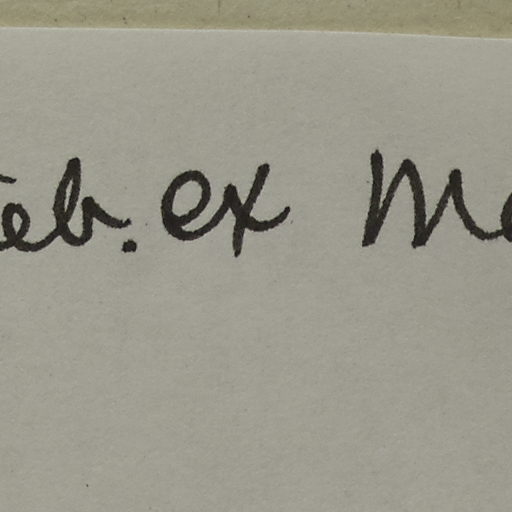 eb. ex M